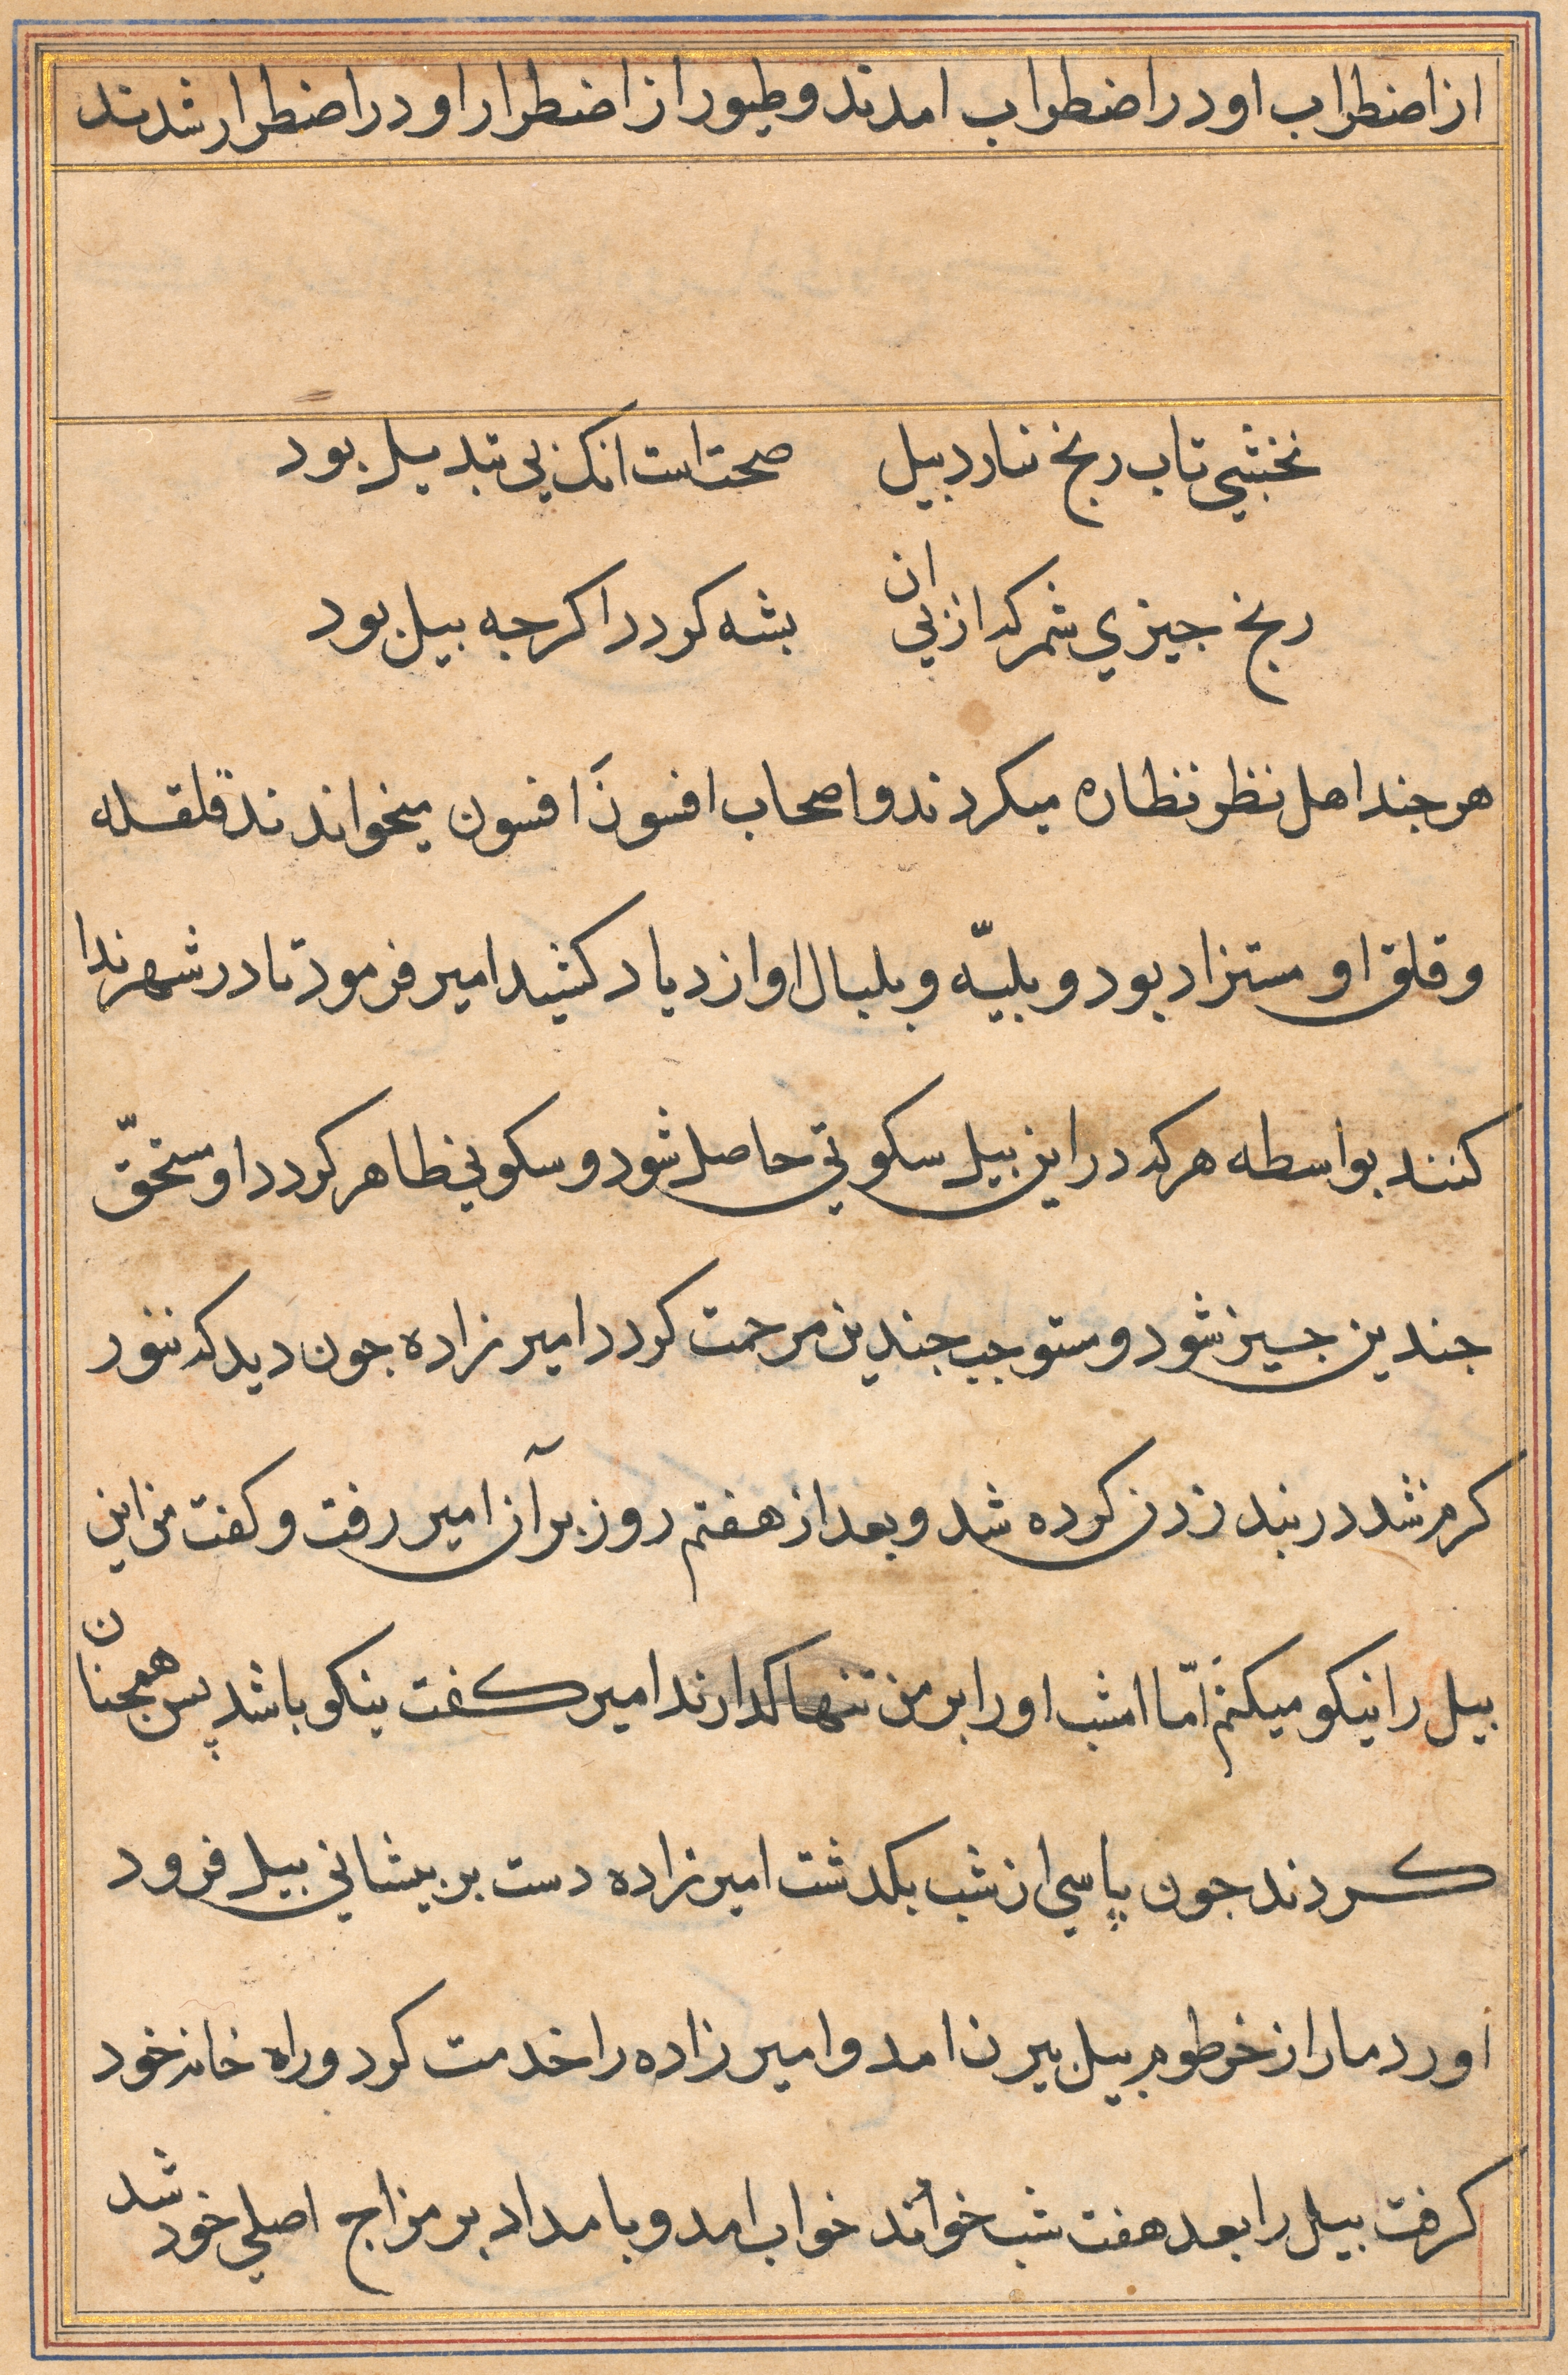 از اضطراب او در اضطراب امدند و طیور از اضطرار او در اضطرار شدند
نخشبی تاب رنج نارد بیل صحت است انک بی تبدیل بود
رنج جیزی شمر که از بی ان بشه کردد اکرجه بیل بود
هر جند اهل نظر نظاره میکردند و اصحاب افسون افسون میخواندند قلقله
و قلق او مستزاد بود و بلیّه و بلبال او ازدیاد کشید امیر فرمود تا در شهر ندا
کنند بواسطه هر که در این بیل سکوتی حاصل شود و سکونی ظاهر کردد او مستحقّ
جندین جیز شود و مستوجب جندین مرحمت کردد امیر زاده جون دید که تنور
کرم شد در بند زدن کرده شد و بعد از هفتم روز بر آن امیر رفت و کفت من این
بیل را نیکو میکنم امّا امشب او را بر من تنها کذارند امیر کفت نیکو باشد پس همجنان
کردند جون پاسی از شب بکدشت امیر زاده دست بر بیشانی بیل فرود
اورد مار از خرطوم بیل بیرن امد و امیر زاده را خدمت کرد و راه خانه خود
کرفت بیل را بعد هفت شب خواند خواب امد و بامداد بر مزاج اصلی خود شد